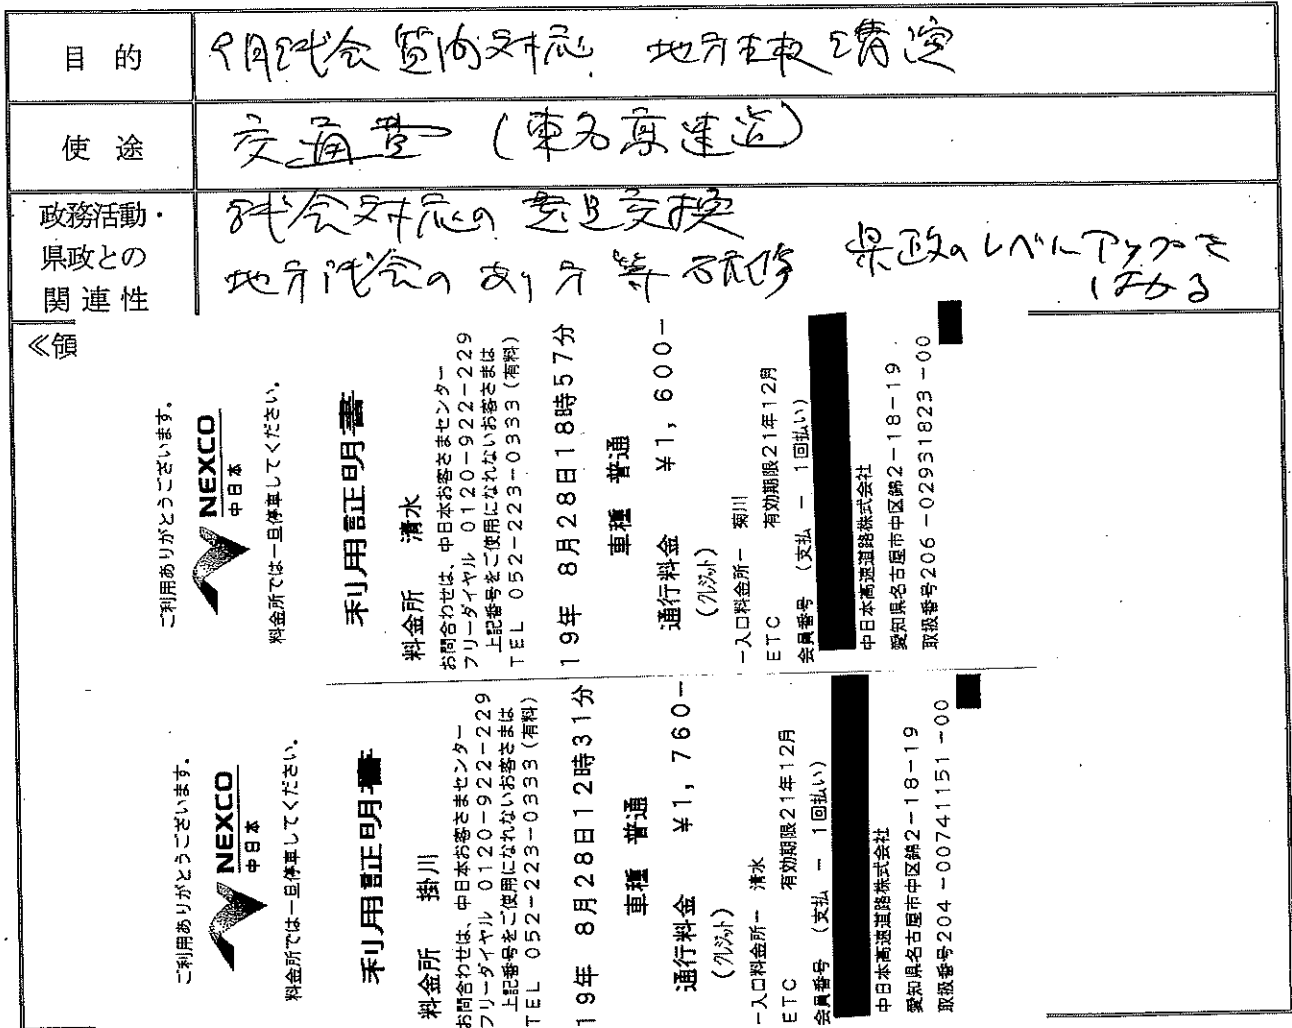 目的
9月議会質問対応 地方主権 講演
使途
交通費 (東名高速道)
政務活動・
県政との
関連性
議会対応の意見交換
地方議会のあり方等研修
県政のレベルアップを
はかる
≪領
ご利用ありがとうございます。
NEXCO
中日本
料金所では一旦停車してください。
利用証明書
料金所 清水
お問合わせは、中日本お客さまセンター
フリーダイヤル 0120-922-229
上記番号をご使用になれないお客さまは
TEL 052-223-0333(有料)
19年 8月28日18時57分
車種 普通
通行料金 ¥1,600-
(クレジット)
-入口料金所- 菊川
ETC 有効期限21年12月
会員番号 (支払 - 1回払い)
中日本高速道路株式会社
愛知県名古屋市中区錦2-18-19
取扱番号206-02931823-00
ご利用ありがとうございます。
NEXCO
中日本
料金所では一旦停車してください。
利用証明書
料金所 掛川
お問合わせは、中日本お客さまセンター
フリーダイヤル 0120-922-229
上記番号をご使用になれないお客さまは
TEL 052-223-0333(有料)
19年 8月28日12時31分
車種 普通
通行料金 ¥1,760-
(クレジット)
-入口料金所- 清水
ETC 有効期限21年12月
会員番号 (支払 - 1回払い)
中日本高速道路株式会社
愛知県名古屋市中区錦2-18-19
取扱番号204-00741151-00